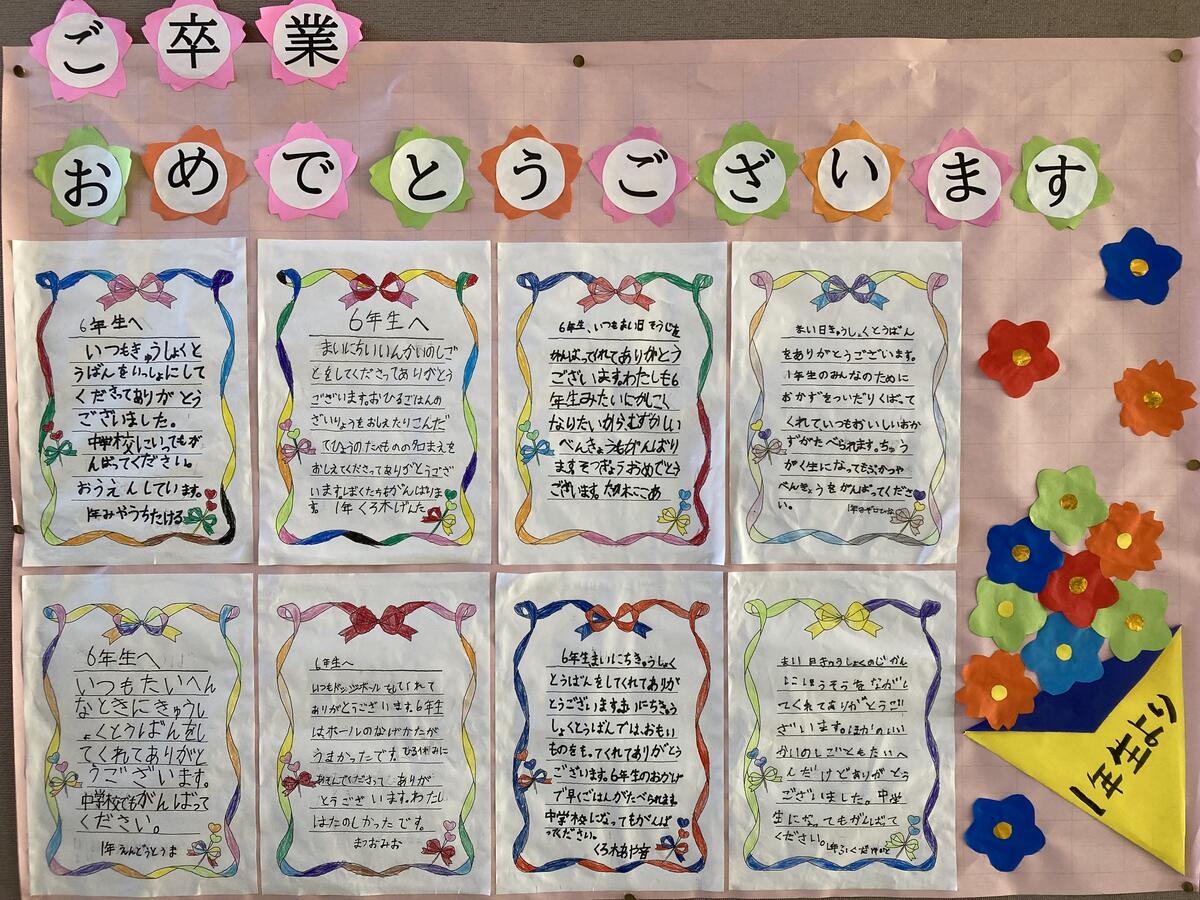 ご卒業
おめでとうございます
6年生へ
いつもきゅうしょくと
うばんをいっしょにして
くださってありがとう
ございました。
中学校にいてもが
んばってください。
おうえんしています。
1年みやうちたける
6年生へ
まいにちいいんかいのしご
とをしてくださってありがとう
ございます。おひるごはんの
ざいりょうをおしえたりこんだ
てひょうのたべものの名まえを
おしえてくださってありがとうござ
います。ぼくたちもがんばりま
す。1年くろ木げんた
6年生、いつもまい日そうじを
がんばってくれてありがとう
ございます。わたしも6
年生みたいにかしこく
なりたいからむずかしい
べんきょうもがんばり
ますそつぎょうおめでとう
ございます。木ここあ
まい日きゅうしょくとうばん
をありがとうございます。
1年生のみんなのために
おかずをついだりくばって
くれていつもおいしいおか
ずがたべられます。ちゅう
がく生になってもぶかつや
べんきょうをがんばってくださ
い。
6年生へ
いつもたいへん
なときにきゅうし
ょくとうばんをし
てくれてありがと
うございます。
中学校でもがんばって
ください。
1年えんどうとうま
6年生へ
いつもドッジボールをしてくれて
ありがとうございます。6年生
はボールのなげかたが
うまかったです。ひる休みに
あそんでくださってありが
とうございます。わたし
はたのしかったです。
まつおみお
6年生まいにちきゅうしょく
とうばんをしてくれてありが
とうございますまいにちきゅう
しょくとうばんでは、おもい
ものをもってくれてありがとう
ございます。6年生のおかげ
で早くごはんがたべられます。
中学校になってもがんば
ってください。
くろ木あや音
まい日きゅうしょくのじかん
にほうそうをながし
てくれてありがとうご
ざいます。ほかのいい
かいのしごともたいへ
んだけどありがとう
ございました。中学
生になってもがんばって
ください。
1年生より